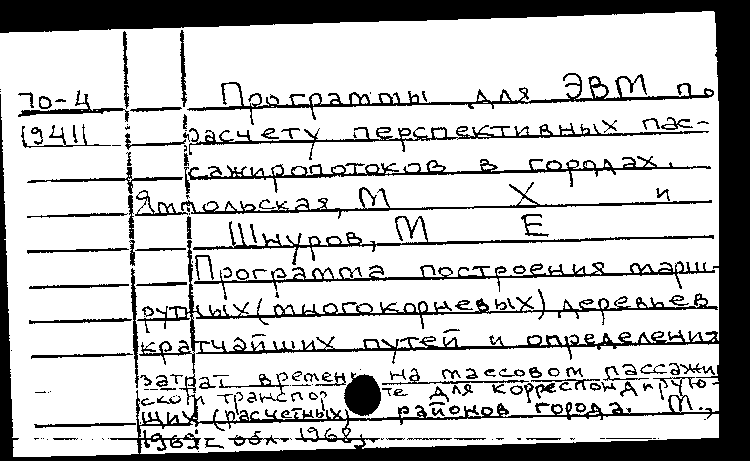 70-4 Программы для ЭВМ по
19411 расчету перспективных пас-
сажиропотоков в городах.
Ямпольская, М Х и
Шнуров, М Е
Программа построения марш-
рутных (многокорневых) деревьев
кратчайших путей и определения
затрат времени на массовом пассажир
ском транспорте для корреспондирую-
щих (расчетных) районов города. М.,
1969 г. обл. 1968 г.